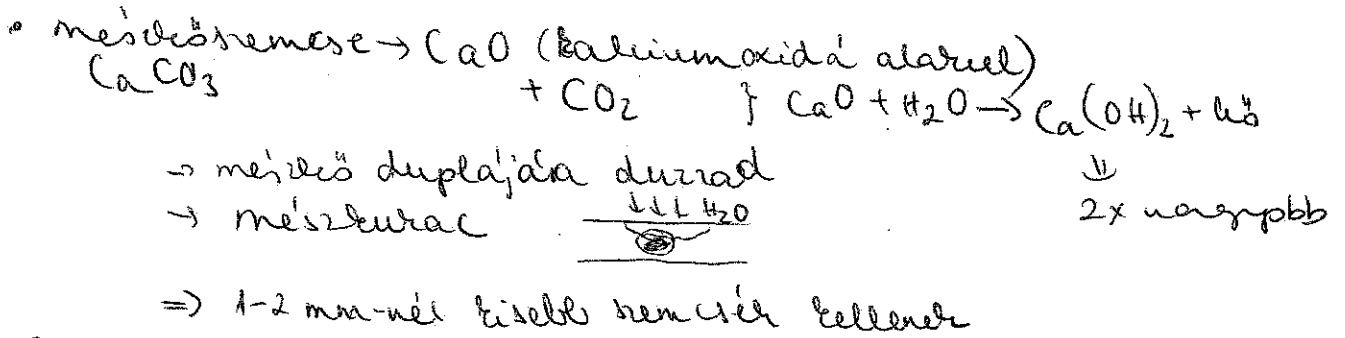 • mészkőszemcse → CaO (kalciumoxidá alakul)
CaCO₃ + CO₂ } CaO + H₂O → Ca(OH)₂ + hő
→ mészkő duplájára duzzad ⇓
→ mészkukac ↓↓↓ H₂O 2x nagyobb
⇒ 1-2 mm-nél kisebb szemcsék kellenek